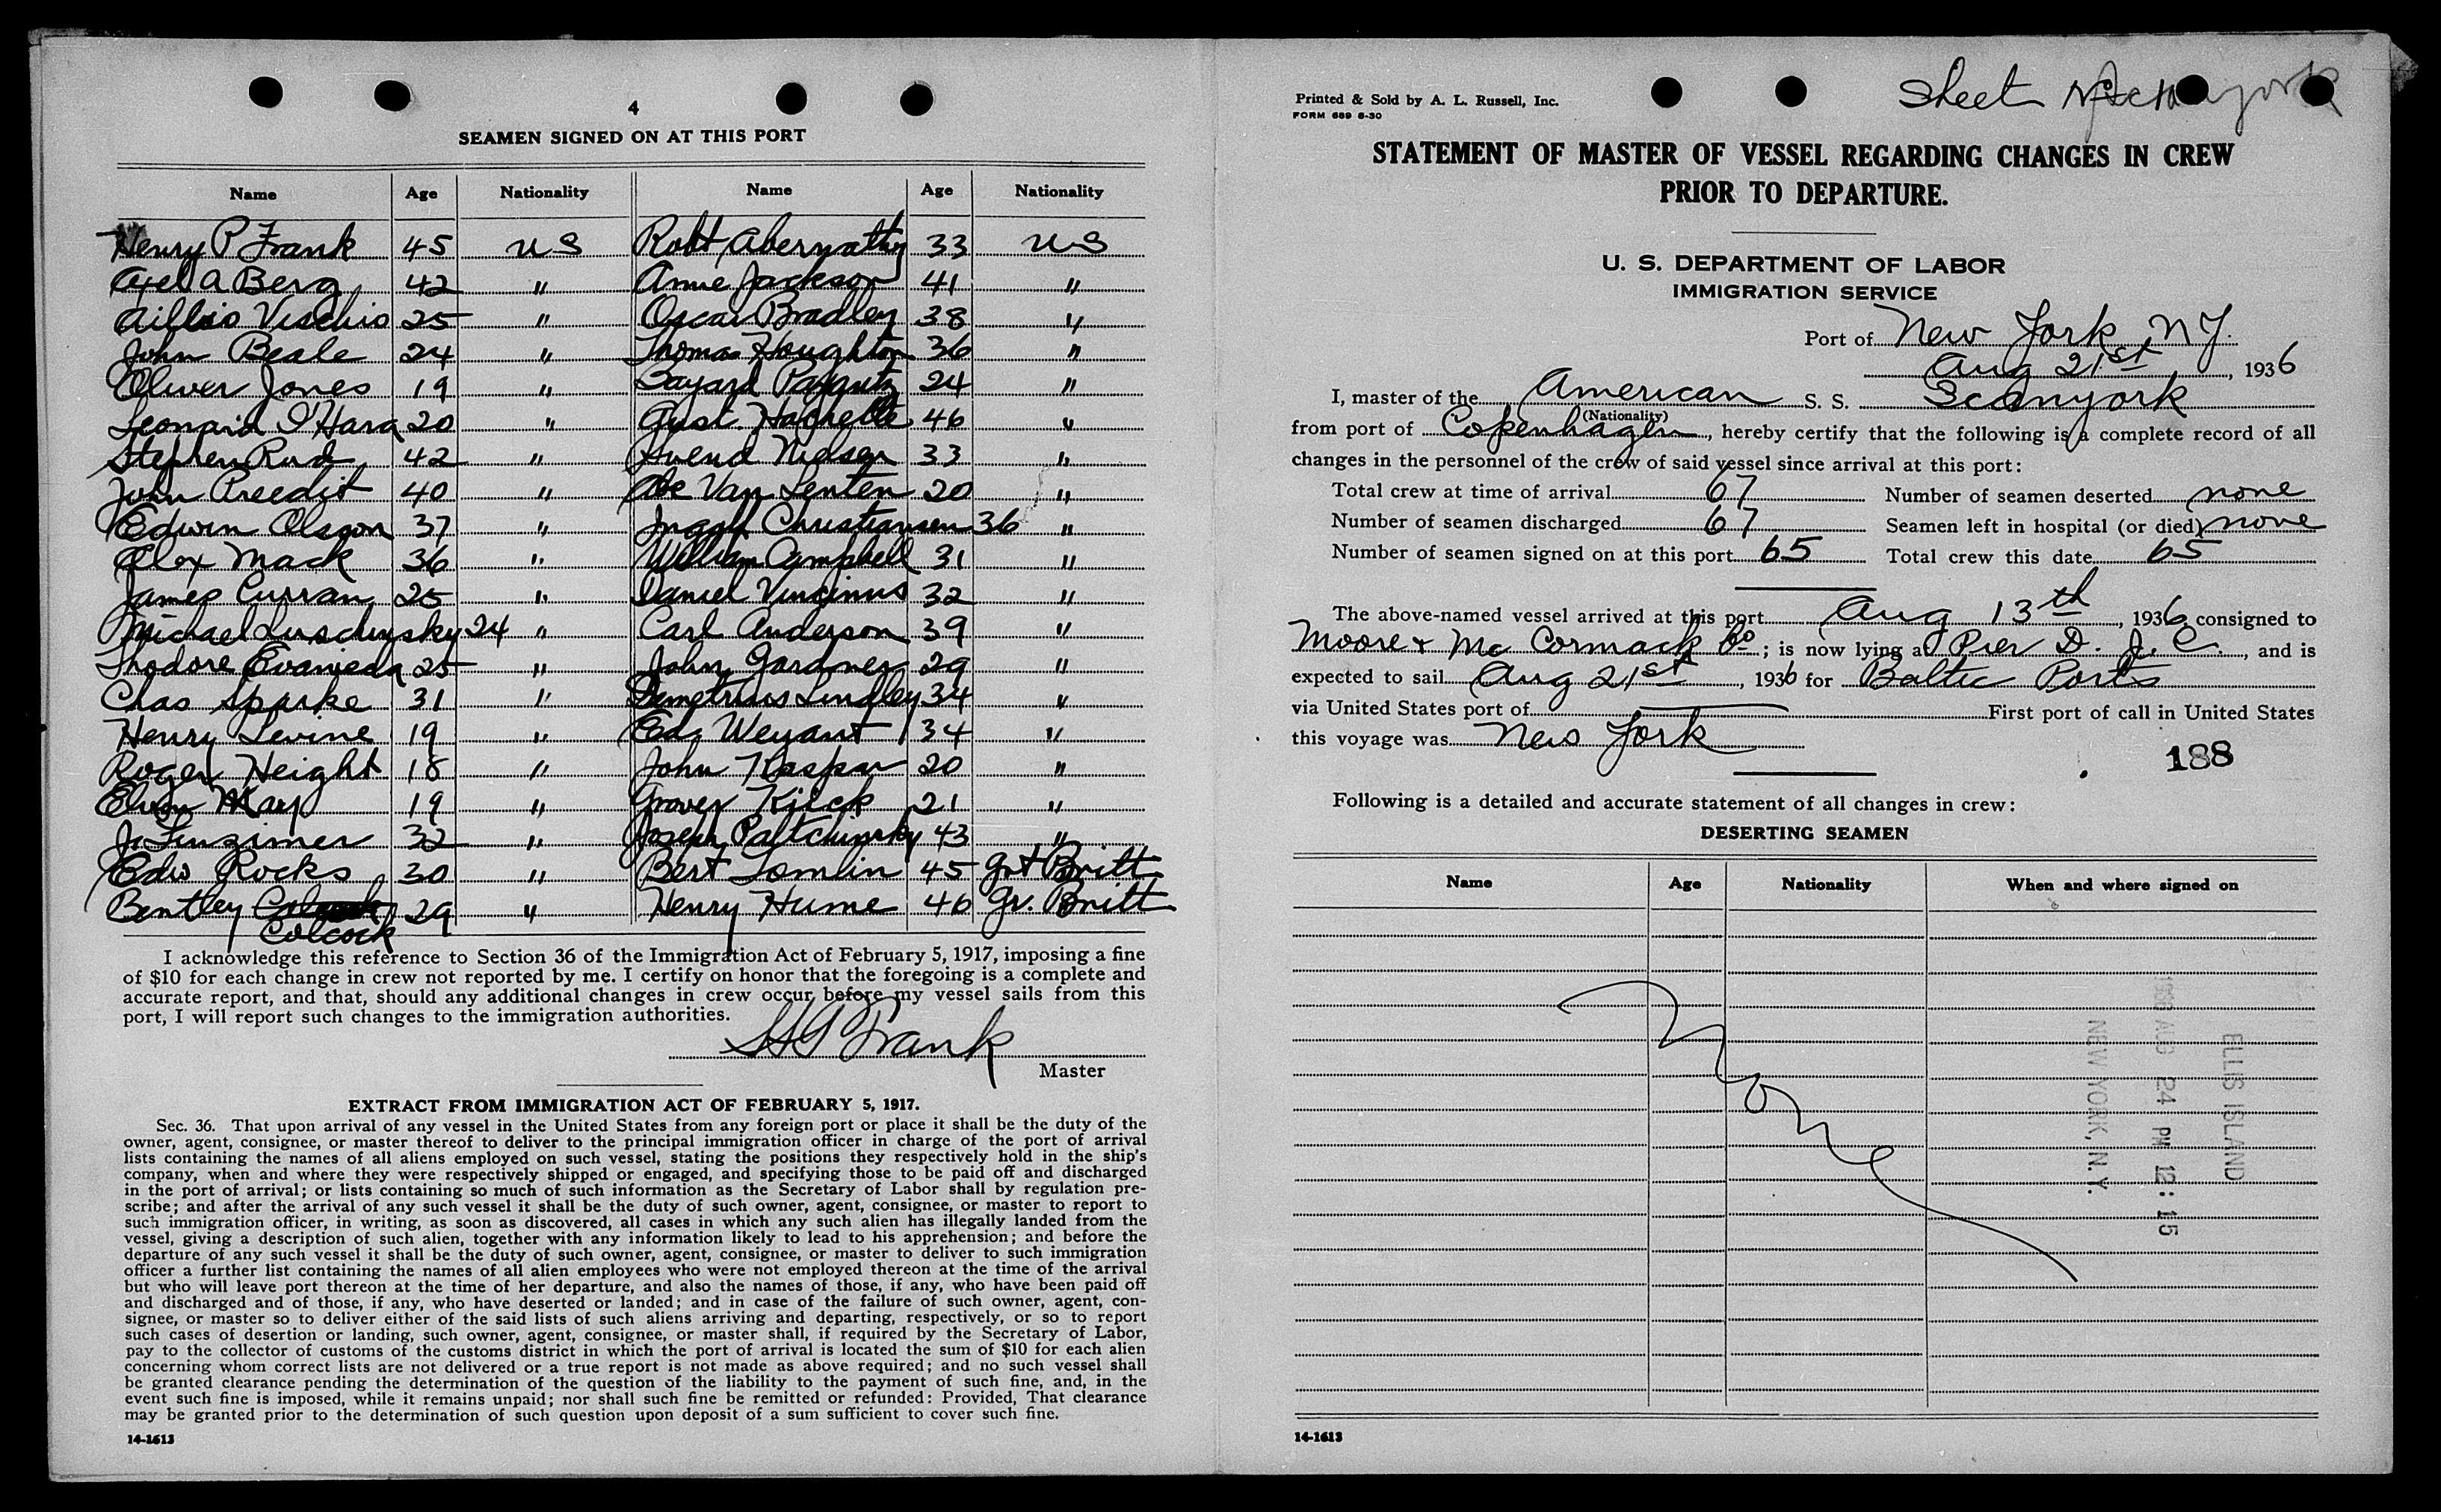 4
SEAMEN SIGNED ON AT THIS PORT
Name Age Nationality Name Age Nationality
Henry P Frank 45 US Robt Abernathy 33 US
Axel A Berg 42 " Anne Jackson 41 "
Vischio 25 " Oscar Bradley 38 "
John Beale 24 " Thomas Houghton 36 "
Oliver Jones 19 " Bayard 24 "
Leonard O'Hara 20 " Gust. 46 "
Stephen Rud 42 " Svend Nielsen 33 "
John Preedit 40 " Abe Van Lenten 20 "
Edwin Olsson 37 " Christiansen 36 "
Alex Mack 36 " William Campbell 31 "
James Curran 25 " Daniel 32 "
Michael Luschinsky 24 " Carl Anderson 39 "
Thodore Evanieda 25 " John Gardner 29 "
Chas Sparke 31 " Demetrius Lindley 34 "
Henry Levine 19 " Ed. Weyant 34 "
Roger Height 18 " John Kaspar 20 "
May 19 " Grover 21 "
J. 32 " Joseph Paltchinsky 43 "
Edw Rocks 30 " Bert Tomlin 45 Grt Britt
Bentley 29 " Henry Hume 46 Gr. Britt
Colcock
I acknowledge this reference to Section 36 of the Immigration Act of February 5, 1917, imposing a fine
of $10 for each change in crew not reported by me. I certify on honor that the foregoing is a complete and
accurate report, and that, should any additional changes in crew occur before my vessel sails from this
port, I will report such changes to the immigration authorities.
Frank
Master
EXTRACT FROM IMMIGRATION ACT OF FEBRUARY 5, 1917.
Sec. 36. That upon arrival of any vessel in the United States from any foreign port or place it shall be the duty of the
owner, agent, consignee, or master thereof to deliver to the principal immigration officer in charge of the port of arrival
lists containing the names of all aliens employed on such vessel, stating the positions they respectively hold in the ship's
company, when and where they were respectively shipped or engaged, and specifying those to be paid off and discharged
in the port of arrival; or lists containing so much of such information as the Secretary of Labor shall by regulation pre-
scribe; and after the arrival of any such vessel it shall be the duty of such owner, agent, consignee, or master to report to
such immigration officer, in writing, as soon as discovered, all cases in which any such alien has illegally landed from the
vessel, giving a description of such alien, together with any information likely to lead to his apprehension; and before the
departure of any such vessel it shall be the duty of such owner, agent, consignee, or master to deliver to such immigration
officer a further list containing the names of all alien employees who were not employed thereon at the time of the arrival
but who will leave port thereon at the time of her departure, and also the names of those, if any, who have been paid off
and discharged and of those, if any, who have deserted or landed; and in case of the failure of such owner, agent, con-
signee, or master so to deliver either of the said lists of such aliens arriving and departing, respectively, or so to report
such cases of desertion or landing, such owner, agent, consignee, or master shall, if required by the Secretary of Labor,
pay to the collector of customs of the customs district in which the port of arrival is located the sum of $10 for each alien
concerning whom correct lists are not delivered or a true report is not made as above required; and no such vessel shall
be granted clearance pending the determination of the question of the liability to the payment of such fine, and, in the
event such fine is imposed, while it remains unpaid; nor shall such fine be remitted or refunded: Provided, That clearance
may be granted prior to the determination of such question upon deposit of a sum sufficient to cover such fine.
14-1613
Printed & Sold by A. L. Russell, Inc.
FORM 689 6-30
Sheet
STATEMENT OF MASTER OF VESSEL REGARDING CHANGES IN CREW
PRIOR TO DEPARTURE.
U. S. DEPARTMENT OF LABOR
IMMIGRATION SERVICE
Port of New York, N.Y.
Aug 21st, 1936
I, master of the American S. S. Scanyork
(Nationality)
from port of Copenhagen, hereby certify that the following is a complete record of all
changes in the personnel of the crew of said vessel since arrival at this port:
Total crew at time of arrival 67 Number of seamen deserted none
Number of seamen discharged 67 Seamen left in hospital (or died) none
Number of seamen signed on at this port 65 Total crew this date 65
The above-named vessel arrived at this port Aug 13th, 1936 consigned to
Moore & Mc Cormack Co; is now lying at Pier D. J. C., and is
expected to sail Aug 21st, 1936 for Baltic Ports
via United States port of First port of call in United States
this voyage was New York
188
Following is a detailed and accurate statement of all changes in crew:
DESERTING SEAMEN
Name Age Nationality When and where signed on
None
ELLIS ISLAND
1936 AUG 24 PM 12:15
NEW YORK, N.Y.
14-1613